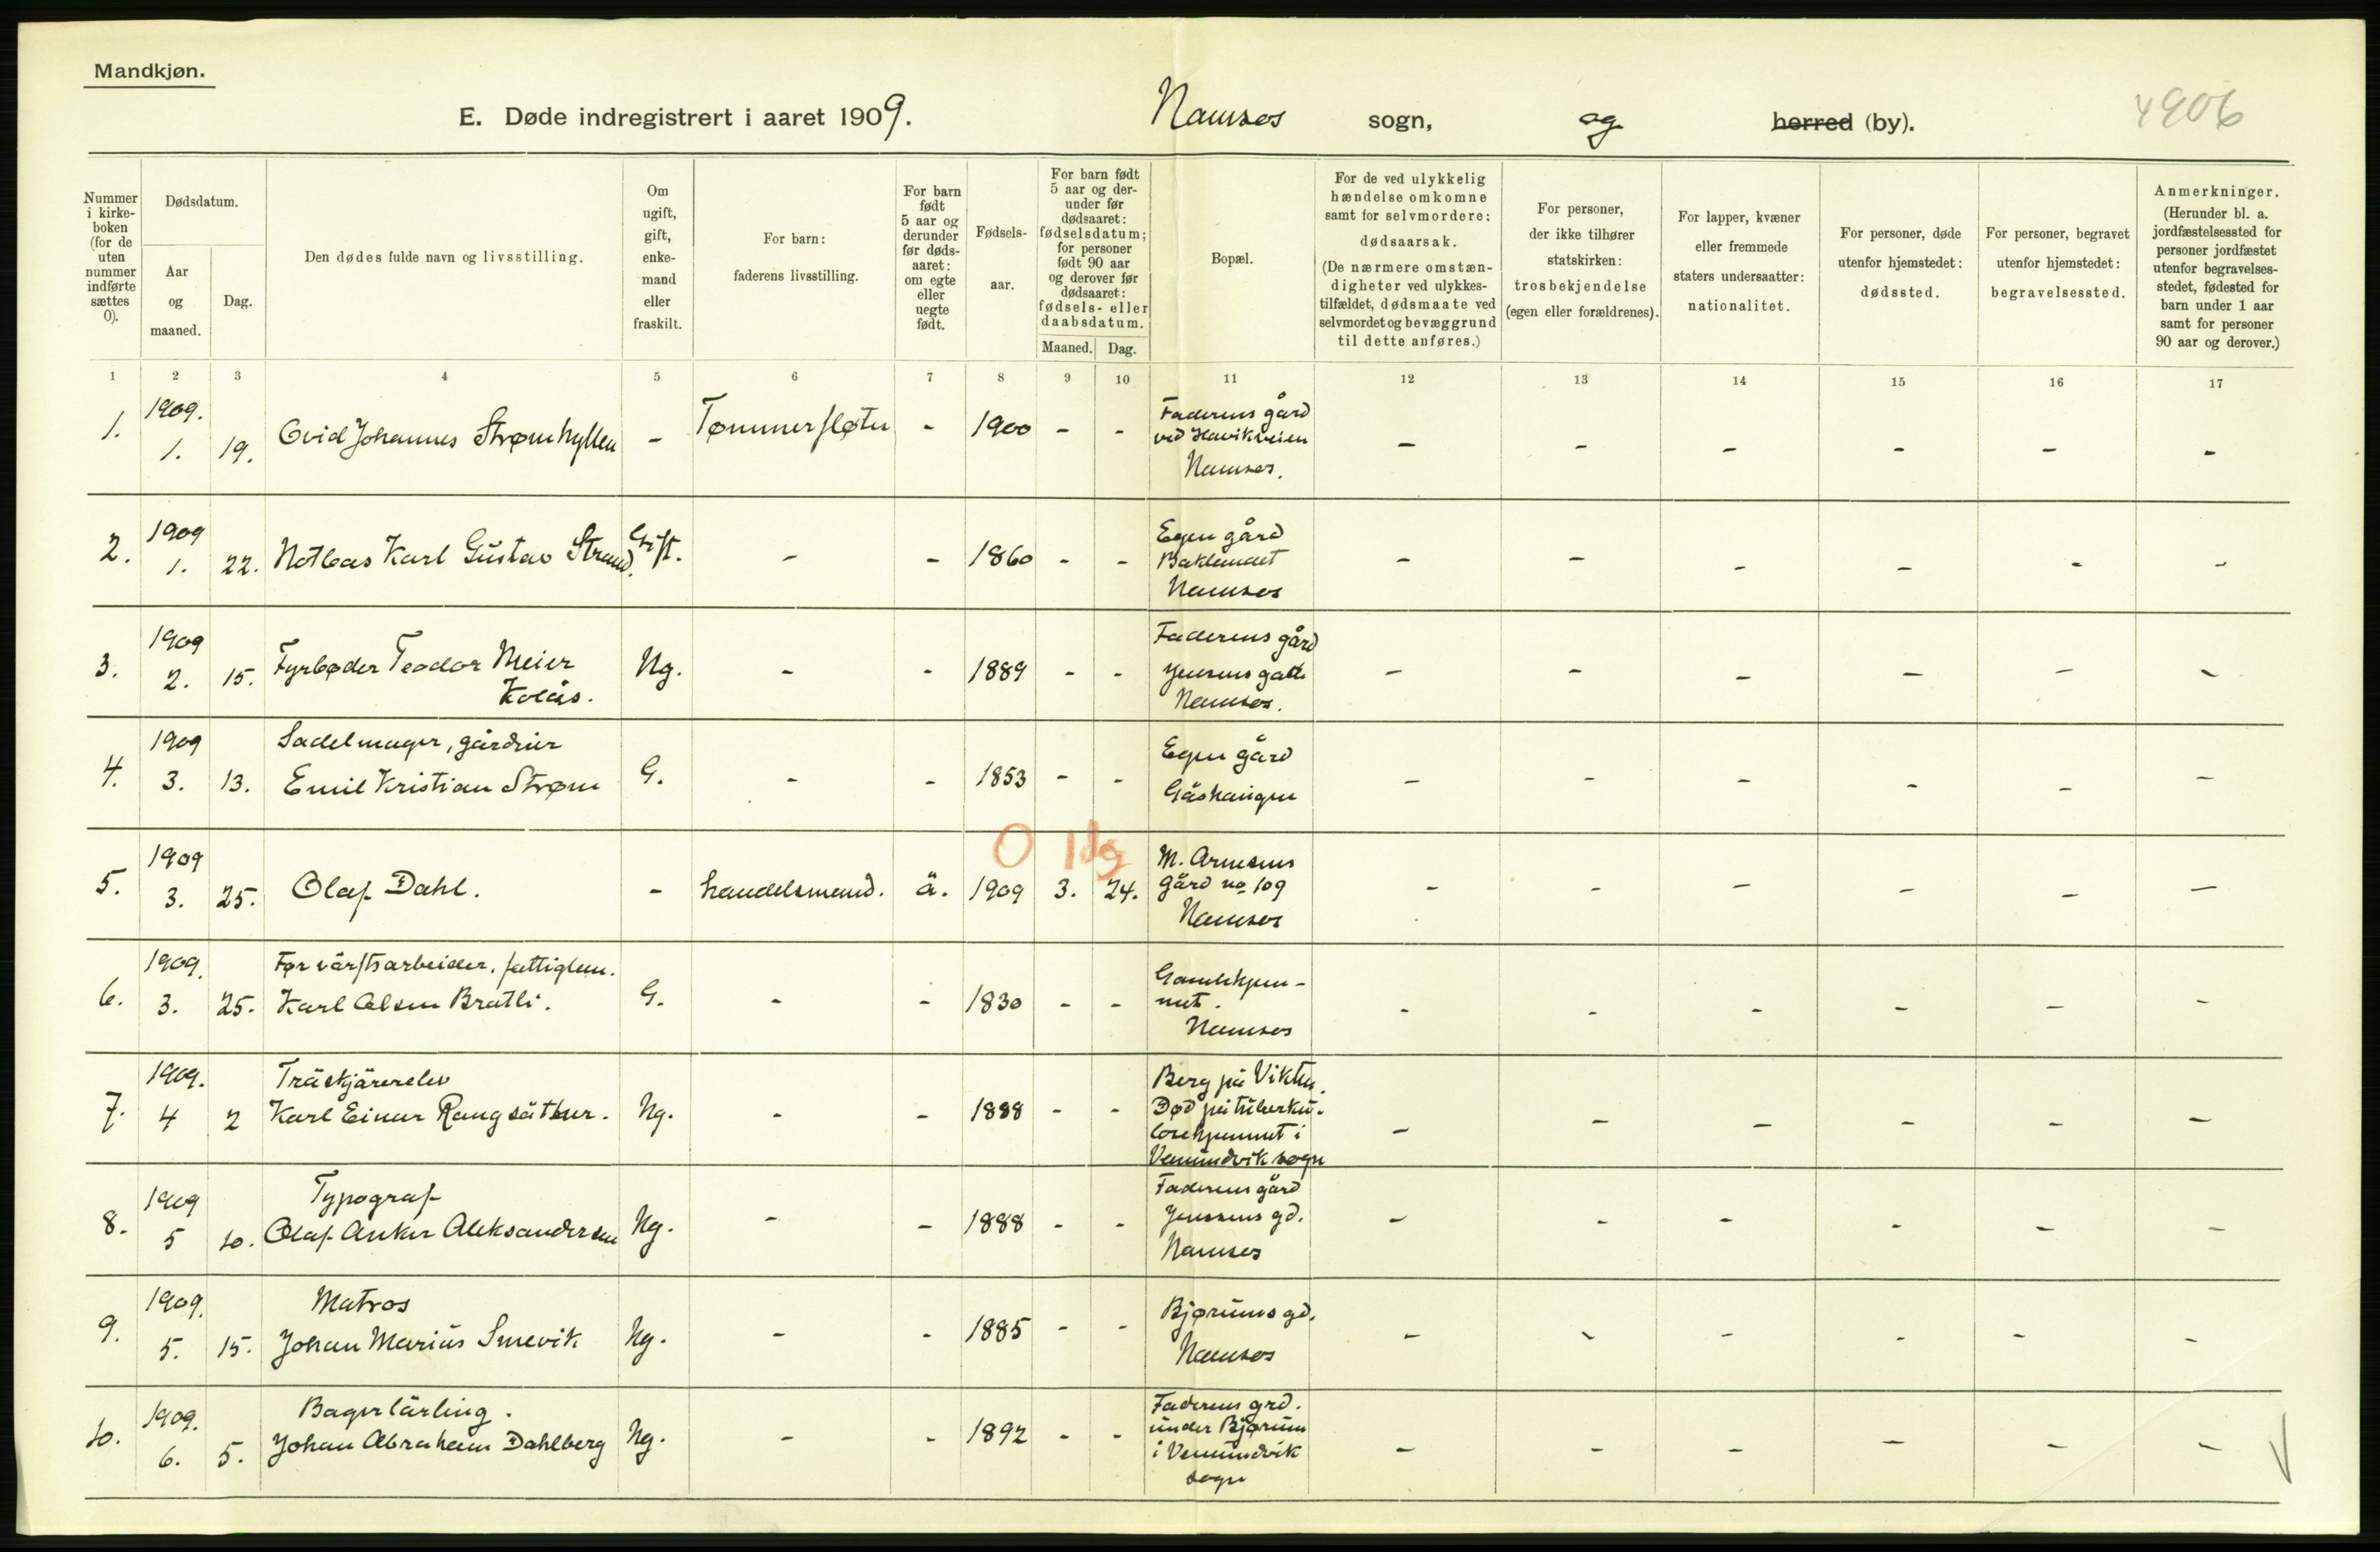 Mandkjøn.
E. Døde indregistrert i aaret 1909. Namsos sogn, og herred (by). 4906
Nummer i kirkeboken (for de uten nummer indførte sættes 0).
Dødsdatum.
Aar og maaned.
Dag.
Den dødes fulde navn og livsstilling.
Om ugift, gift, enkemand eller fraskilt.
For barn: faderens livsstilling.
For barn født 5 aar og derunder før dødsaaret: om egte eller uegte født.
Fødselsaar.
For barn født 5 aar og derunder før dødsaaret: fødselsdatum; for personer født 90 aar og derover før dødsaaret: fødsels- eller daabsdatum.
Maaned. Dag.
Bopæl.
For de ved ulykkelig hændelse omkomne samt for selvmordere: dødsaarsak. (De nærmere omstændigheter ved ulykkestilfældet, dødsmaate ved selvmordet og bevæggrund til dette anføres.)
For personer, der ikke tilhører statskirken: trosbekjendelse (egen eller forældrenes).
For lapper, kvæner eller fremmede staters undersaatter: nationalitet.
For personer, døde utenfor hjemstedet: dødssted.
For personer, begravet utenfor hjemstedet: begravelsessted.
Anmerkninger. (Herunder bl. a. jordfæstelsessted for personer jordfæstet utenfor begravelsesstedet, fødested for barn under 1 aar samt for personer 90 aar og derover.)
1 2 3 4 5 6 7 8 9 10 11 12 13 14 15 16 17
1. 1909. 1. 19. Ovid Johannes Strømhyllen - Tømmerfløter - 1900 - - Faderens gård
ved Havikveien
Namsos. - - - - - -
2. 1909 1. 22. Notbas Karl Gustav Strand. Gift. - - 1860 - - Egen gård
Baklandet
Namsos - - - - - -
3. 1909 2. 15. Fyrbøder Teodor Meier
Kolås. Ug. - - 1889 - - Faderens gård
Jensens gate
Namsos. - - - - - -
4. 1909 3. 13. Sadelmager, gårdeier
Emil Kristian Strøm G. - - 1853 - - Egen gård
Gåshaugen - - - - - -
0 1dg
5. 1909 3. 25. Olaf Dahl. - handelsmand. ä. 1909 3. 24. M. Arnesens
gård no 109
Namsos - - - - - -
6. 1909. 3. 25. Før värftsarbeider, fattiglem.
Karl Olsen Bratli. G. - - 1830 - - Gamlehjem-
met.
Namsos - - - - - -
7. 1909. 4 2 Träskjärerelev
Karl Einar Rangsäther. Ug. - - 1888 - - Berg på Vikten.
Død på tuberku-
losehjemmet i
Vemundvik sogn - - - - - -
8. 1909 5 10. Typograf
Olaf Anker Aleksandersen Ug. - - 1888 - - Faderens gård
Jenssens gd.
Namsos - - - - - -
9. 1909. 5. 15. Matros
Johan Marius Smevik Ug. - - 1885 - - Bjørums gd.
Namsos - - - - - -
10. 1909. 6. 5. Bagerlärling.
Johan Abraham Dahlberg Ug. - - 1892 - - Faderens grd.
under Bjørum
i Vemundvik
sogn - - - - - -